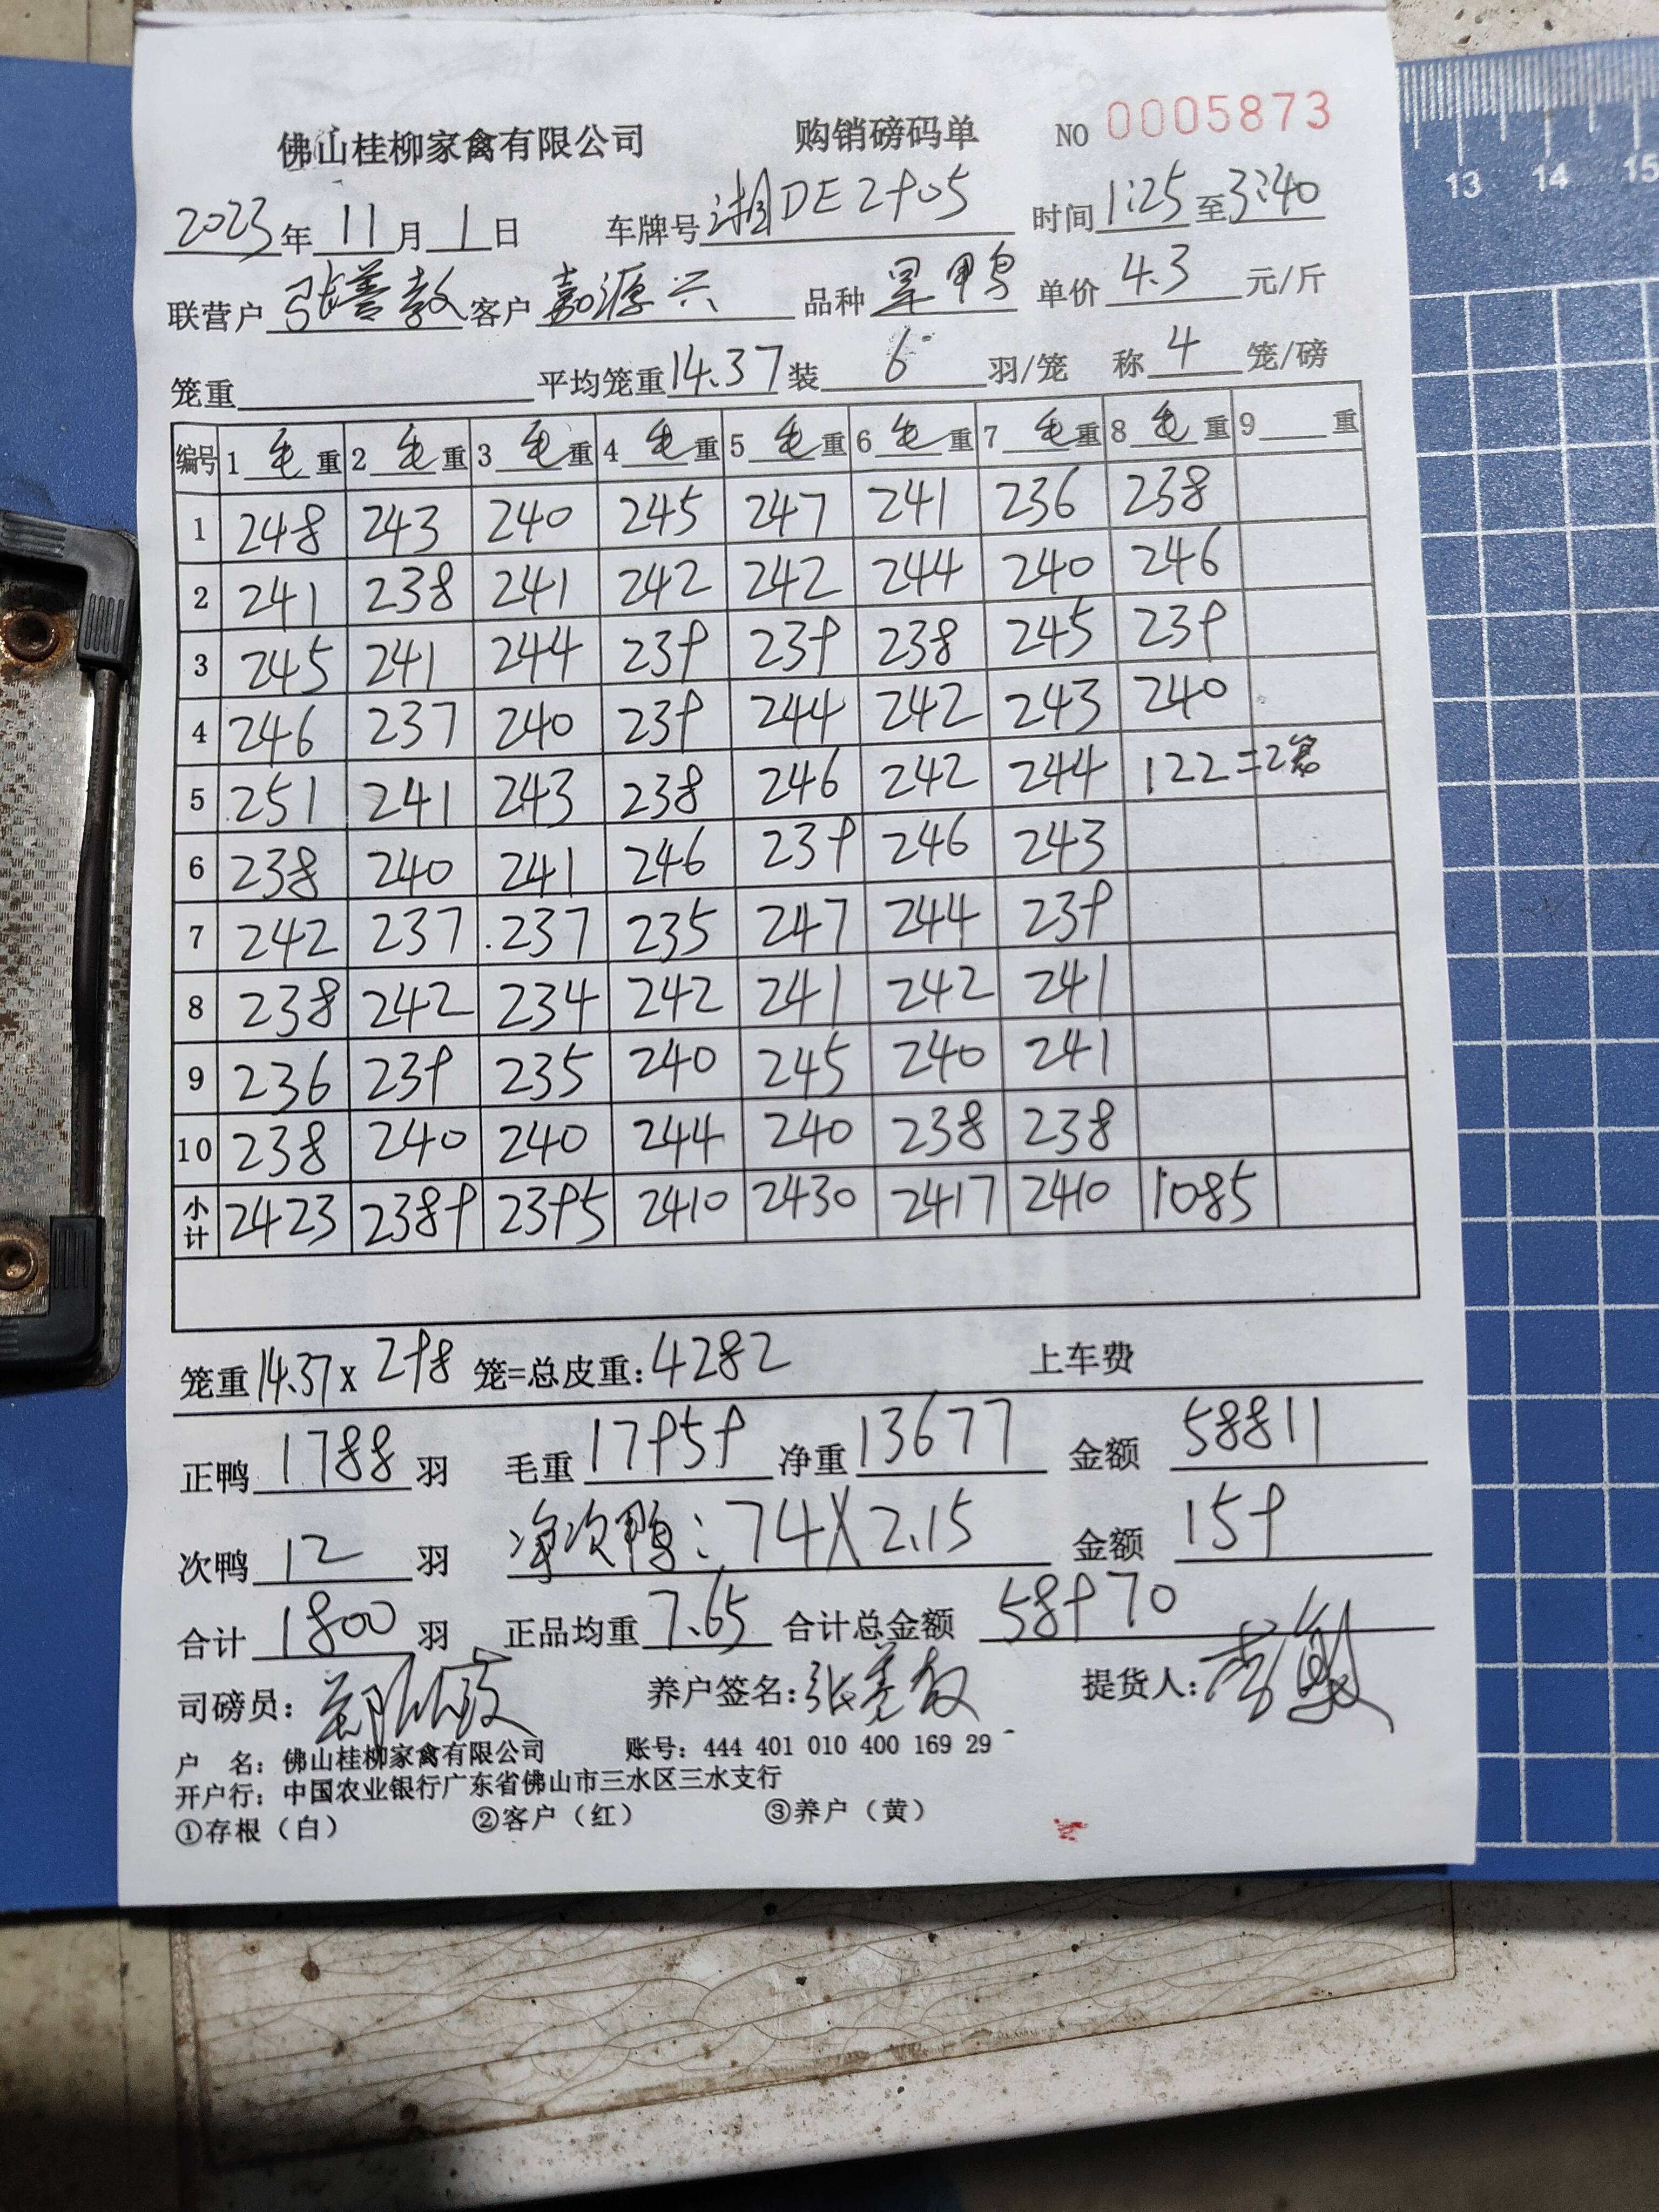 佛山桂柳家禽有限公司 购销磅码单 NO 0005873
2023年 11月 1日 车牌号 湘DE2905 时间 1:25 至 3:40
联营户 张善教 客户 嘉源兴 品种 旱鸭 单价 4.3 元/斤
笼重 平均笼重 14.37 装 6 羽/笼 称 4 笼/磅
编号 1 毛 重 2 毛 重 3 毛 重 4 毛 重 5 毛 重 6 毛 重 7 毛 重 8 毛 重 9 重
1 248 243 240 245 247 241 236 238
2 241 238 241 242 242 244 240 246
3 245 241 244 239 239 238 245 239
4 246 237 240 239 244 242 243 240
5 251 241 243 238 246 242 244 122=2笼
6 238 240 241 246 239 246 243
7 242 237 237 235 247 244 239
8 238 242 234 242 241 242 241
9 236 239 235 240 245 240 241
10 238 240 240 244 240 238 238
小计 2423 2389 2395 2410 2430 2417 2410 1085
笼重 14.37 x 298 笼=总皮重: 4282 上车费
正鸭 1788 羽 毛重 17959 净重 13677 金额 58811
次鸭 12 羽 净次鸭: 74X2.15 金额 159
合计 1800 羽 正品均重 7.65 合计总金额 58970
司磅员: 养户签名: 张善教 提货人:
户 名: 佛山桂柳家禽有限公司 账号: 444 401 010 400 169 29
开户行: 中国农业银行广东省佛山市三水区三水支行
①存根(白) ②客户(红) ③养户(黄)